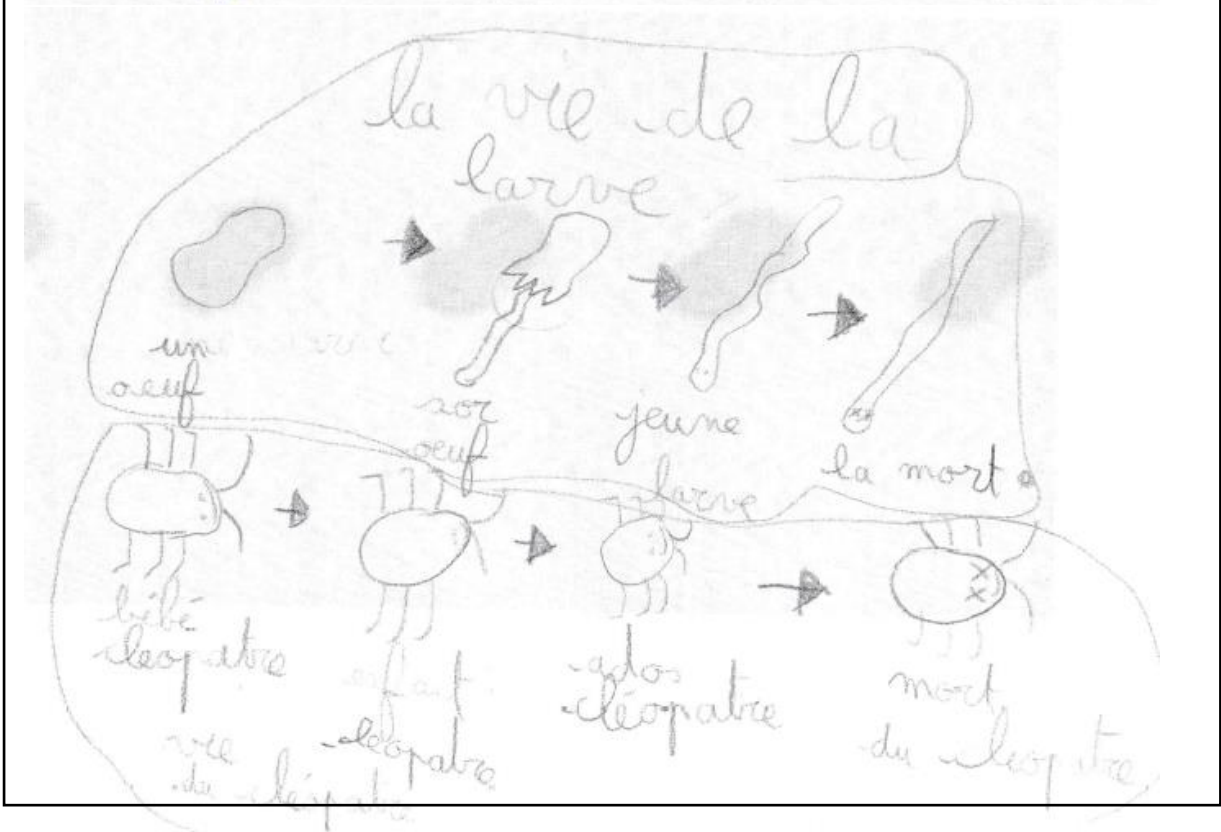 la vie de la
larve
un
oeuf
sor
oeuf
jeune
larve
la mort
bébé
cleopatre
enfant
cleopatre
ados
cléopatre
mort
du cleopatre
vie
du cléopatre